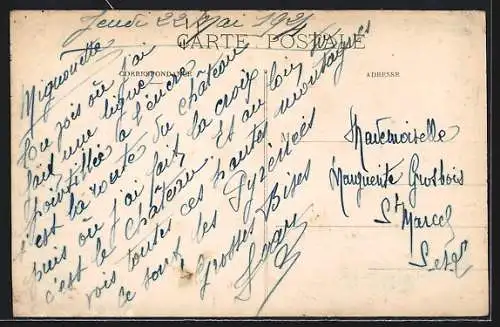 Jeudi 22 Mai 1921
CARTE POSTALE
CORRESPONDANCE
ADRESSE
Mignonette
Tu vois où j'ai
fait une ligne
pointillée à l'encre
c'est la route du château
puis où j'ai fait la croix
c'est le château. Et au loin
vois toutes ces hautes montagnes
ce sont les Pyrénées
Grosses Bises
M
Mademoiselle
Marguerite Grosbois
St Marcel